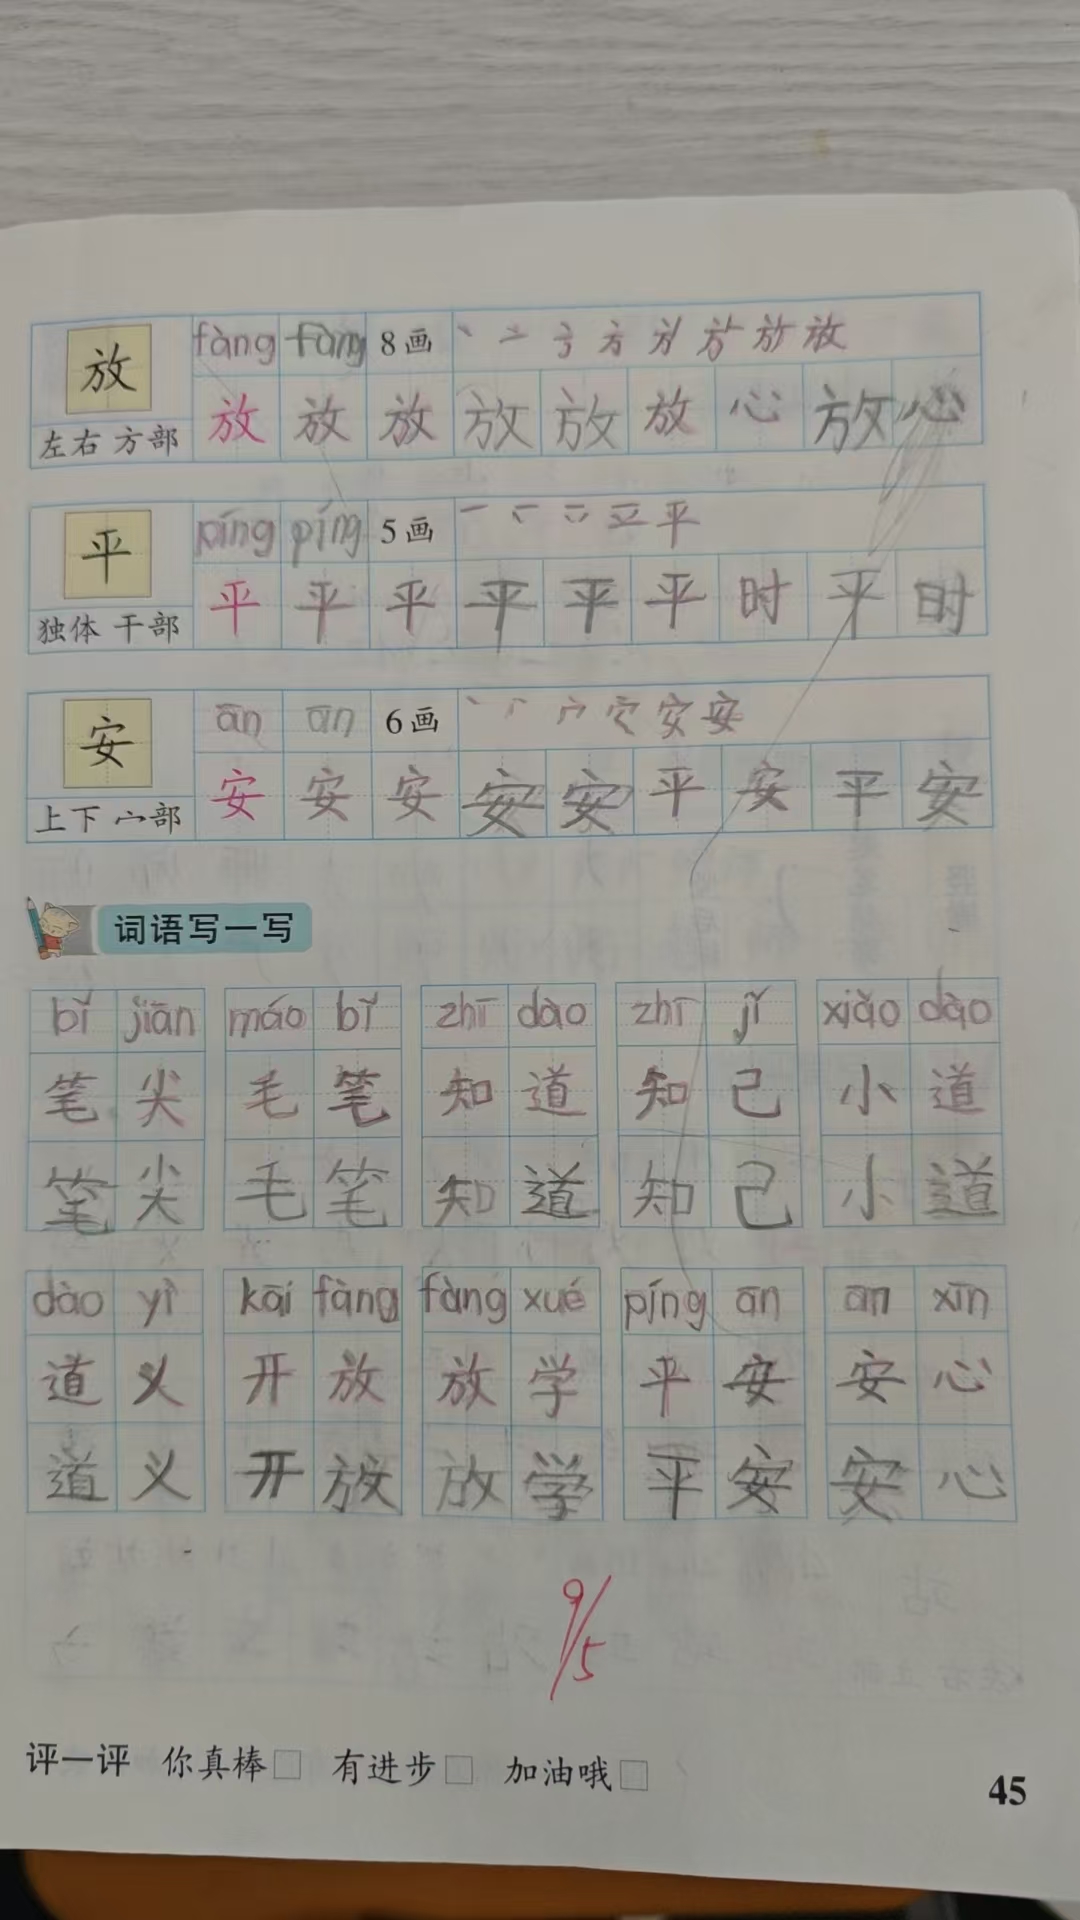 fàng fàng 8画 丶 亠 亍 方 方 放 放 放
放
放 放 放 放 放 放 心 放 心
左右 方部
píng píng 5画 一 平
平
平 平 平 平 平 平 时 平 时
独体 干部
ān ān 6画 丶 宀 安 安
安
安 安 安 安 安 平 安 平 安
上下 宀部
词语写一写
bǐ jiān máo bǐ zhī dào zhī jǐ xiǎo dào
笔 尖 毛 笔 知 道 知 己 小 道
笔 尖 毛 笔 知 道 知 己 小 道
dào yì kāi fàng fàng xué píng ān ān xīn
道 义 开 放 放 学 平 安 安 心
道 义 开 放 放 学 平 安 安 心
9/5
评一评 你真棒□ 有进步□ 加油哦□
45